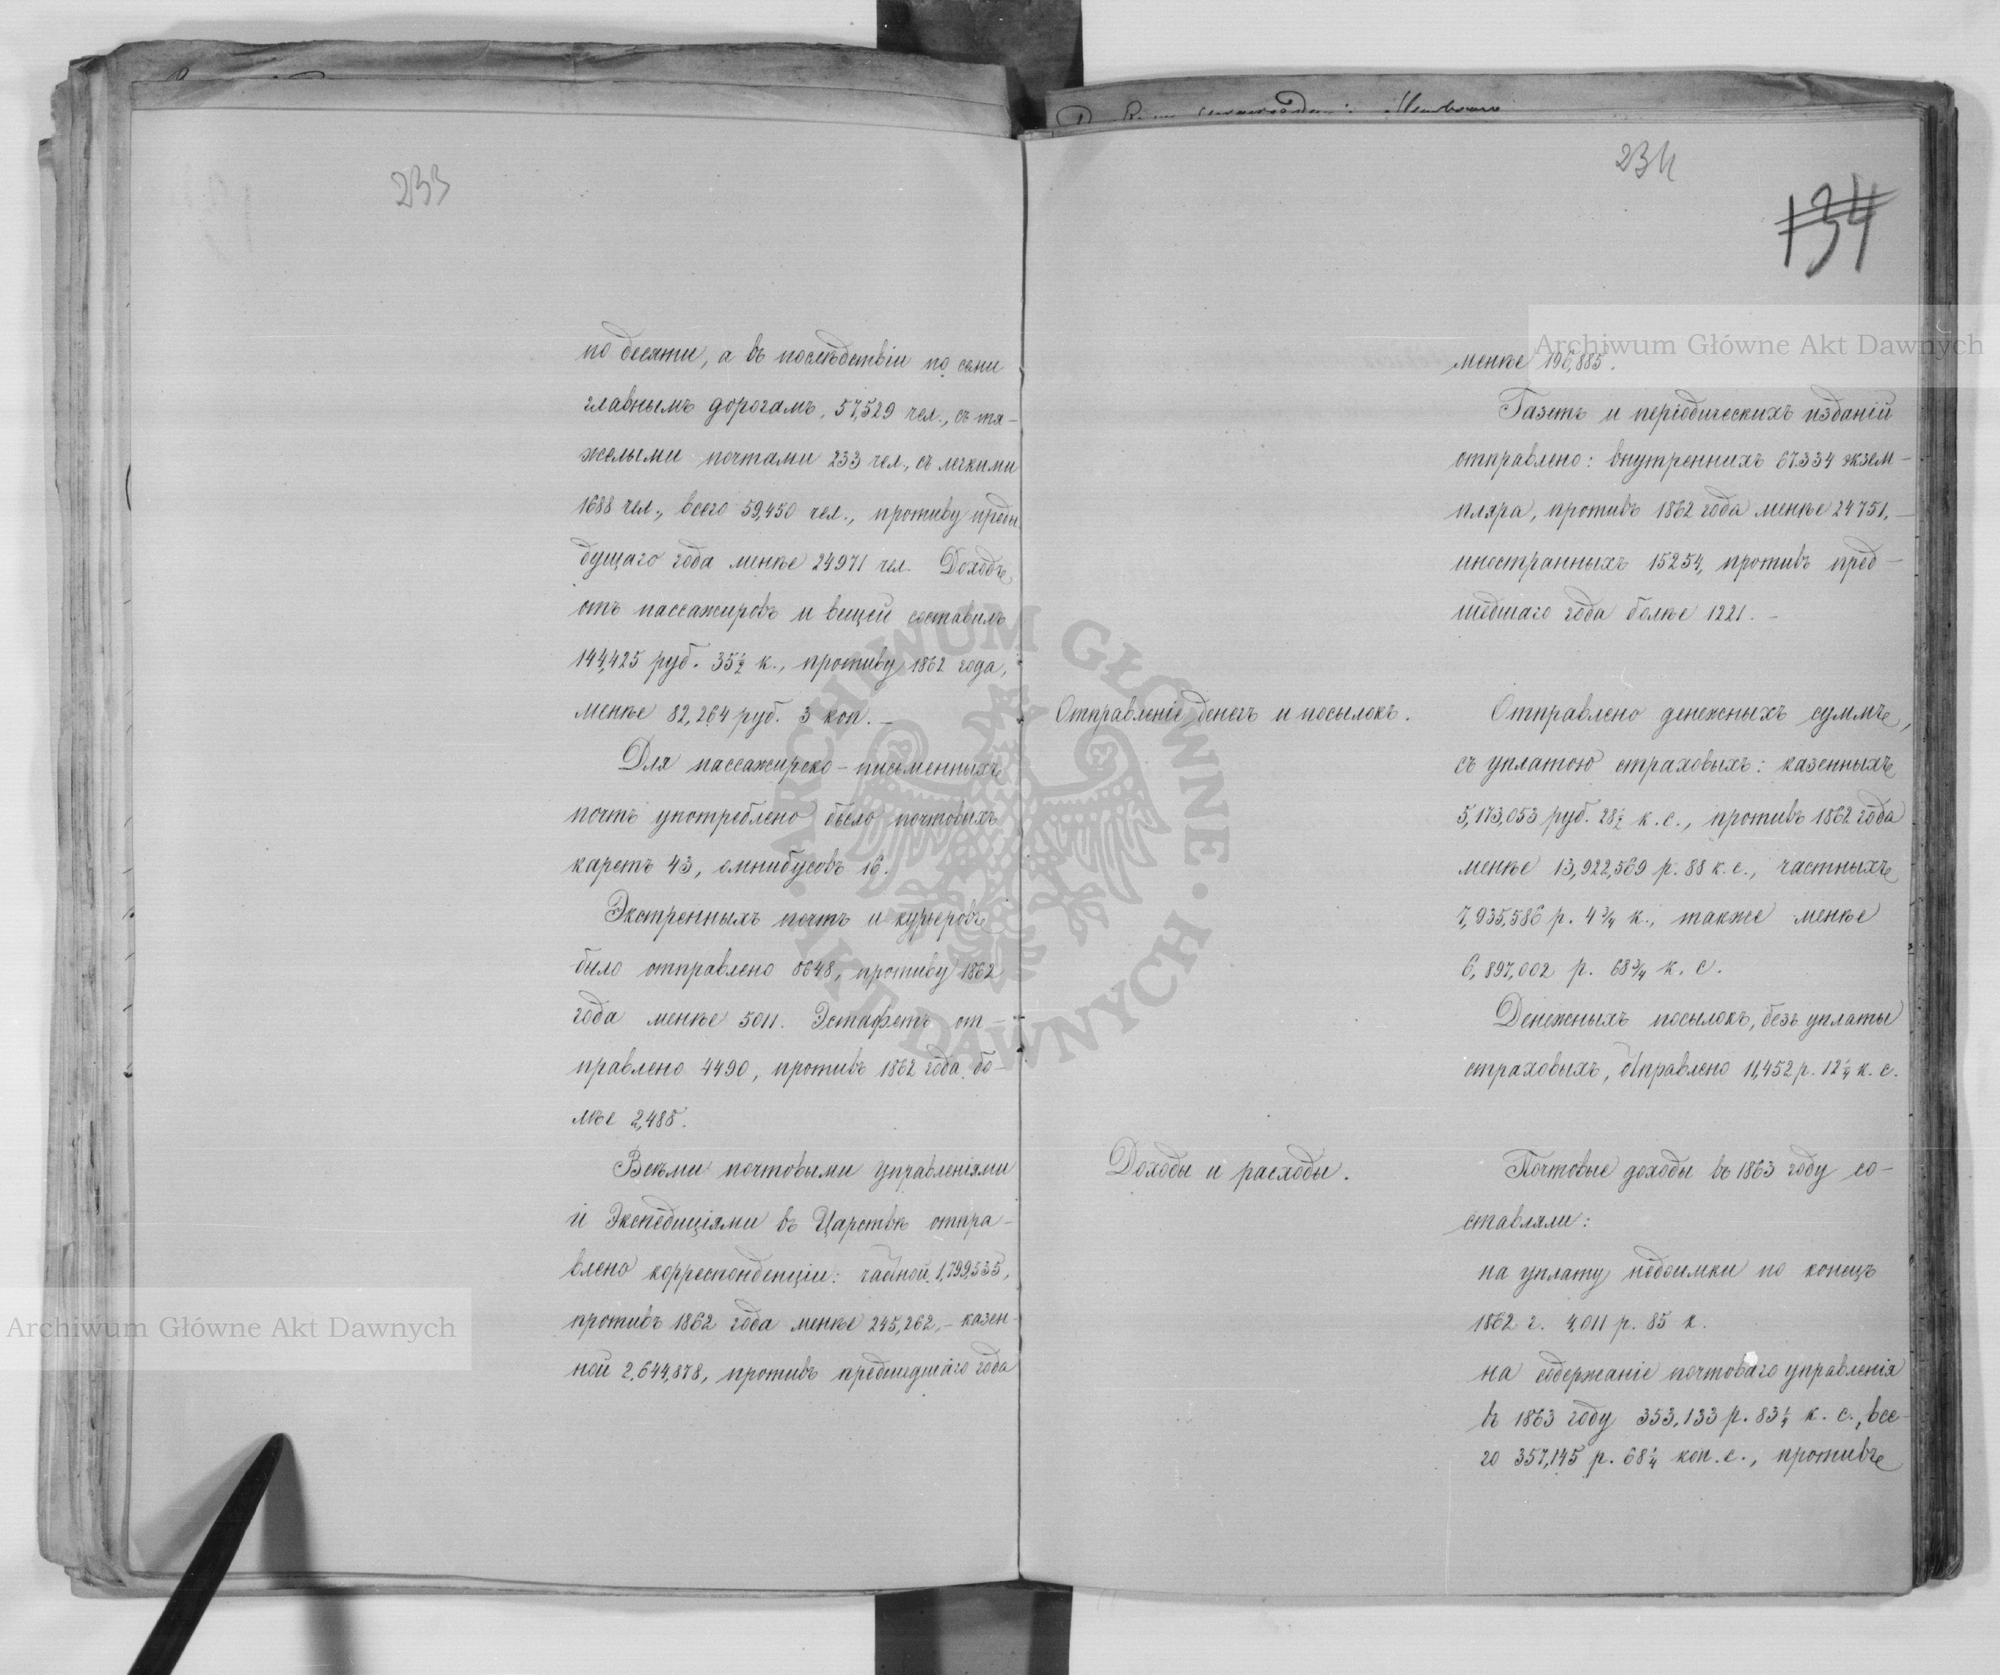 233
по десяти, а въ послѣдствіи по семи
главнымъ дорогамъ, 57,529 чел., съ тя-
желыми почтами 233 чел., съ легкими
1688 чел., всего 59,450 чел., противу преды
дущаго года менѣе 24971 чел. Доходъ
отъ пассажировъ и вещей составилъ
144,425 руб. 35½ к., противу 1862 года,
менѣе 82,264 руб. 3 коп. —
Для пассажирско-письменныхъ
почтъ употреблено было почтовыхъ
каретъ 43, омнибусовъ 16.
Экстренныхъ почтъ и курьеровъ
было отправлено 8648, противу 1862
года менѣе 5011. Эстафетъ от-
правлено 4490, противъ 1862 года бо-
лѣе 2,485.
Всѣми почтовыми управленіями
и Экспедиціями въ Царствѣ отпра-
влено корреспонденціи: частной 1,799,535,
противъ 1862 года менѣе 245,262, — казен-
ной 2,644,878, противъ предшедшаго года
234
134
менѣе 196,885.
Газетъ и періодическихъ изданій
отправлено: внутреннихъ 67.334 экзем-
пляра, противъ 1862 года менѣе 24751, —
иностранныхъ 15254, противъ пред-
шедшаго года болѣе 1221. —
Отправленіе денегъ и посылокъ.
Отправлено денежныхъ суммъ,
съ уплатою страховыхъ: казенныхъ
5,173,053 руб. 28½ к. с., противъ 1862 года
менѣе 13,922,569 р. 88 к. с., частныхъ
7,935,586 р. 4¾ к., также менѣе
6,897,002 р. 68¾ к. с.
Денежныхъ посылокъ, безъ уплаты
страховыхъ, отправлено 11,452 р. 12¼ к. с.
Доходы и расходы.
Почтовые доходы въ 1863 году со-
ставляли:
на уплату недоимки по конецъ
1862 г. 4,011 р. 85 к.
на содержаніе почтоваго управленія
въ 1863 году 353,133 р. 83¼ к. с., все-
го 357,145 р. 68¼ коп. с., противъ
Archiwum Główne Akt Dawnych
Archiwum Główne Akt Dawnych
ARCHIWUM GŁÓWNE · AKT DAWNYCH ·